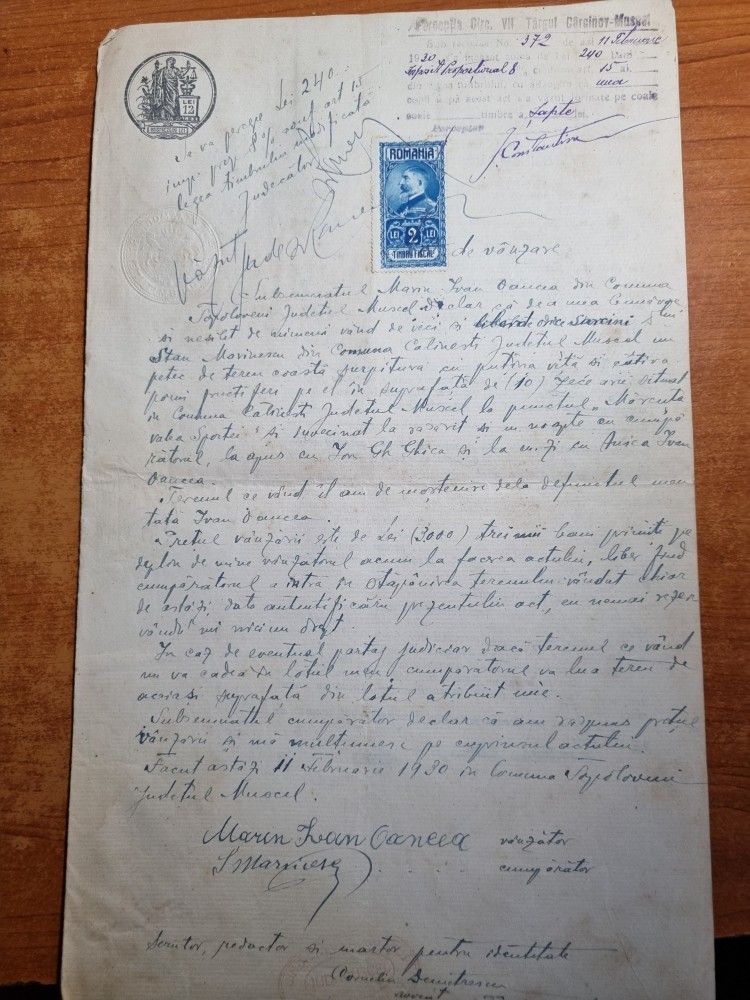 Percepția Circ. VII Târgul Cârcinov-Mușcel
No. 372 11 Februarie
1930 240
impozit proporțional 8 15
una
șapte
Perceptor
Constantin
LEI 12
Se va percepe Lei 240
imp. prop. 8% conf. art 15
legea timbrului modificată
Judecător
ROMÂNIA
LEI 2 LEI
TIMBRU FISCAL
de vânzare
Subsemnatul Marin Ivan Oancea din Comuna
Topoloveni Județul Muscel declar că de a mea bunăvoe
și nesilit de nimeni vând de veci și liberat de orice sarcini
Stan Marinescu din Comuna Călinești Județul Muscel un
petec de teren coastă surpitură cu puțină viță și câțiva
pomi fructiferi pe el în suprafață de (10) zece arii situat
în Comuna Călinești Județul Muscel la punctul
valea și învecinat la răsărit și m. noapte cu cumpă
rătorul, la apus cu Ion Gh Ghica și la m.zi cu Anica Ivan
Oancea.
Terenul ce vând îl am de moștenire dela defunctul meu
tată Ivan Oancea.
Prețul vânzării este de Lei (3000) trei mii bani primiți pe
deplin de mine vânzătorul acum la facerea actului, liber fiind
cumpărătorul a intra în stăpânirea terenului vândut chiar
de astăzi, data autentificării prezentului act, eu nemai rezer
vându mi nici un drept.
In caz de eventual partaj judiciar dacă terenul ce vând
nu va cădea în lotul meu, cumpărătorul va lua teren de
aceiași suprafață din lotul atribuit mie.
Subsemnatul cumpărător declar că am răspuns prețul
vânzării și mă mulțumesc pe cuprinsul actului.
Făcut astăzi 11 Februarie 1930 în Comuna Topoloveni
Județul Muscel.
Marin Ivan Oancea vânzător
S Marinescu cumpărător
Scriitor, redactor și martor pentru identitate
Corneliu Demetrescu